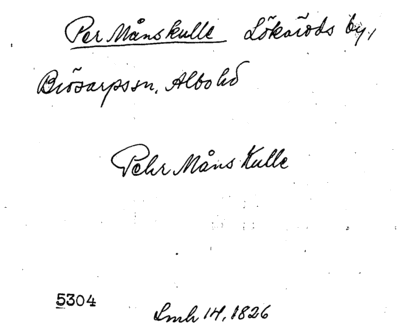 Per Månskulle Lökaröds by,
Brösarpssn, Albo hd
Pehr Måns Kulle
5304
Lmh 14, 1826